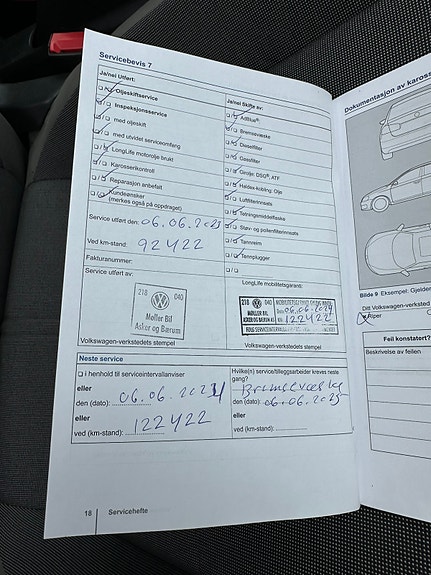 Servicebevis 7
Ja/nei Utført:
Oljeskiftservice
Inspeksjonsservice
med oljeskift
med utvidet serviceomfang
LongLife motorolje brukt
Karosserikontroll
Reparasjon anbefalt
Kundeønsker
(merkes også på oppdraget)
Service utført den: 06.06.2023
Ved km-stand: 92422
Fakturanummer:
Service utført av:
218 040
Møller Bil
Asker og Bærum
Volkswagen-verkstedets stempel
Ja/nei Skifte av:
AdBlue®
Bremsevæske
Dieselfilter
Gassfilter
Girolje: DSG®, ATF
Haldex-kobling: Olje
Luftfilterinnsats
Tetningsmiddelflaske
Støv- og pollenfilterinnsats
Tannreim
Tennplugger
LongLife mobilitetsgaranti:
218 040
MØLLER BIL
ASKER OG BÆRUM AS
06.06.2024
122422
Volkswagen-verkstedets stempel
Neste service
i henhold til serviceintervallanviser
eller
den (dato): 06.06.2024
eller
ved (km-stand): 122422
Hvilke(n) service/tilleggsarbeider kreves neste
gang? Bremsevæske
den (dato): 06.06.2025
eller
ved (km-stand):
18 Servicehefte
Dokumentasjon av kaross
Bilde 9 Eksempel: Gjelden
Ditt Volkswagen-verksted
Riper
Feil konstatert?
Beskrivelse av feilen